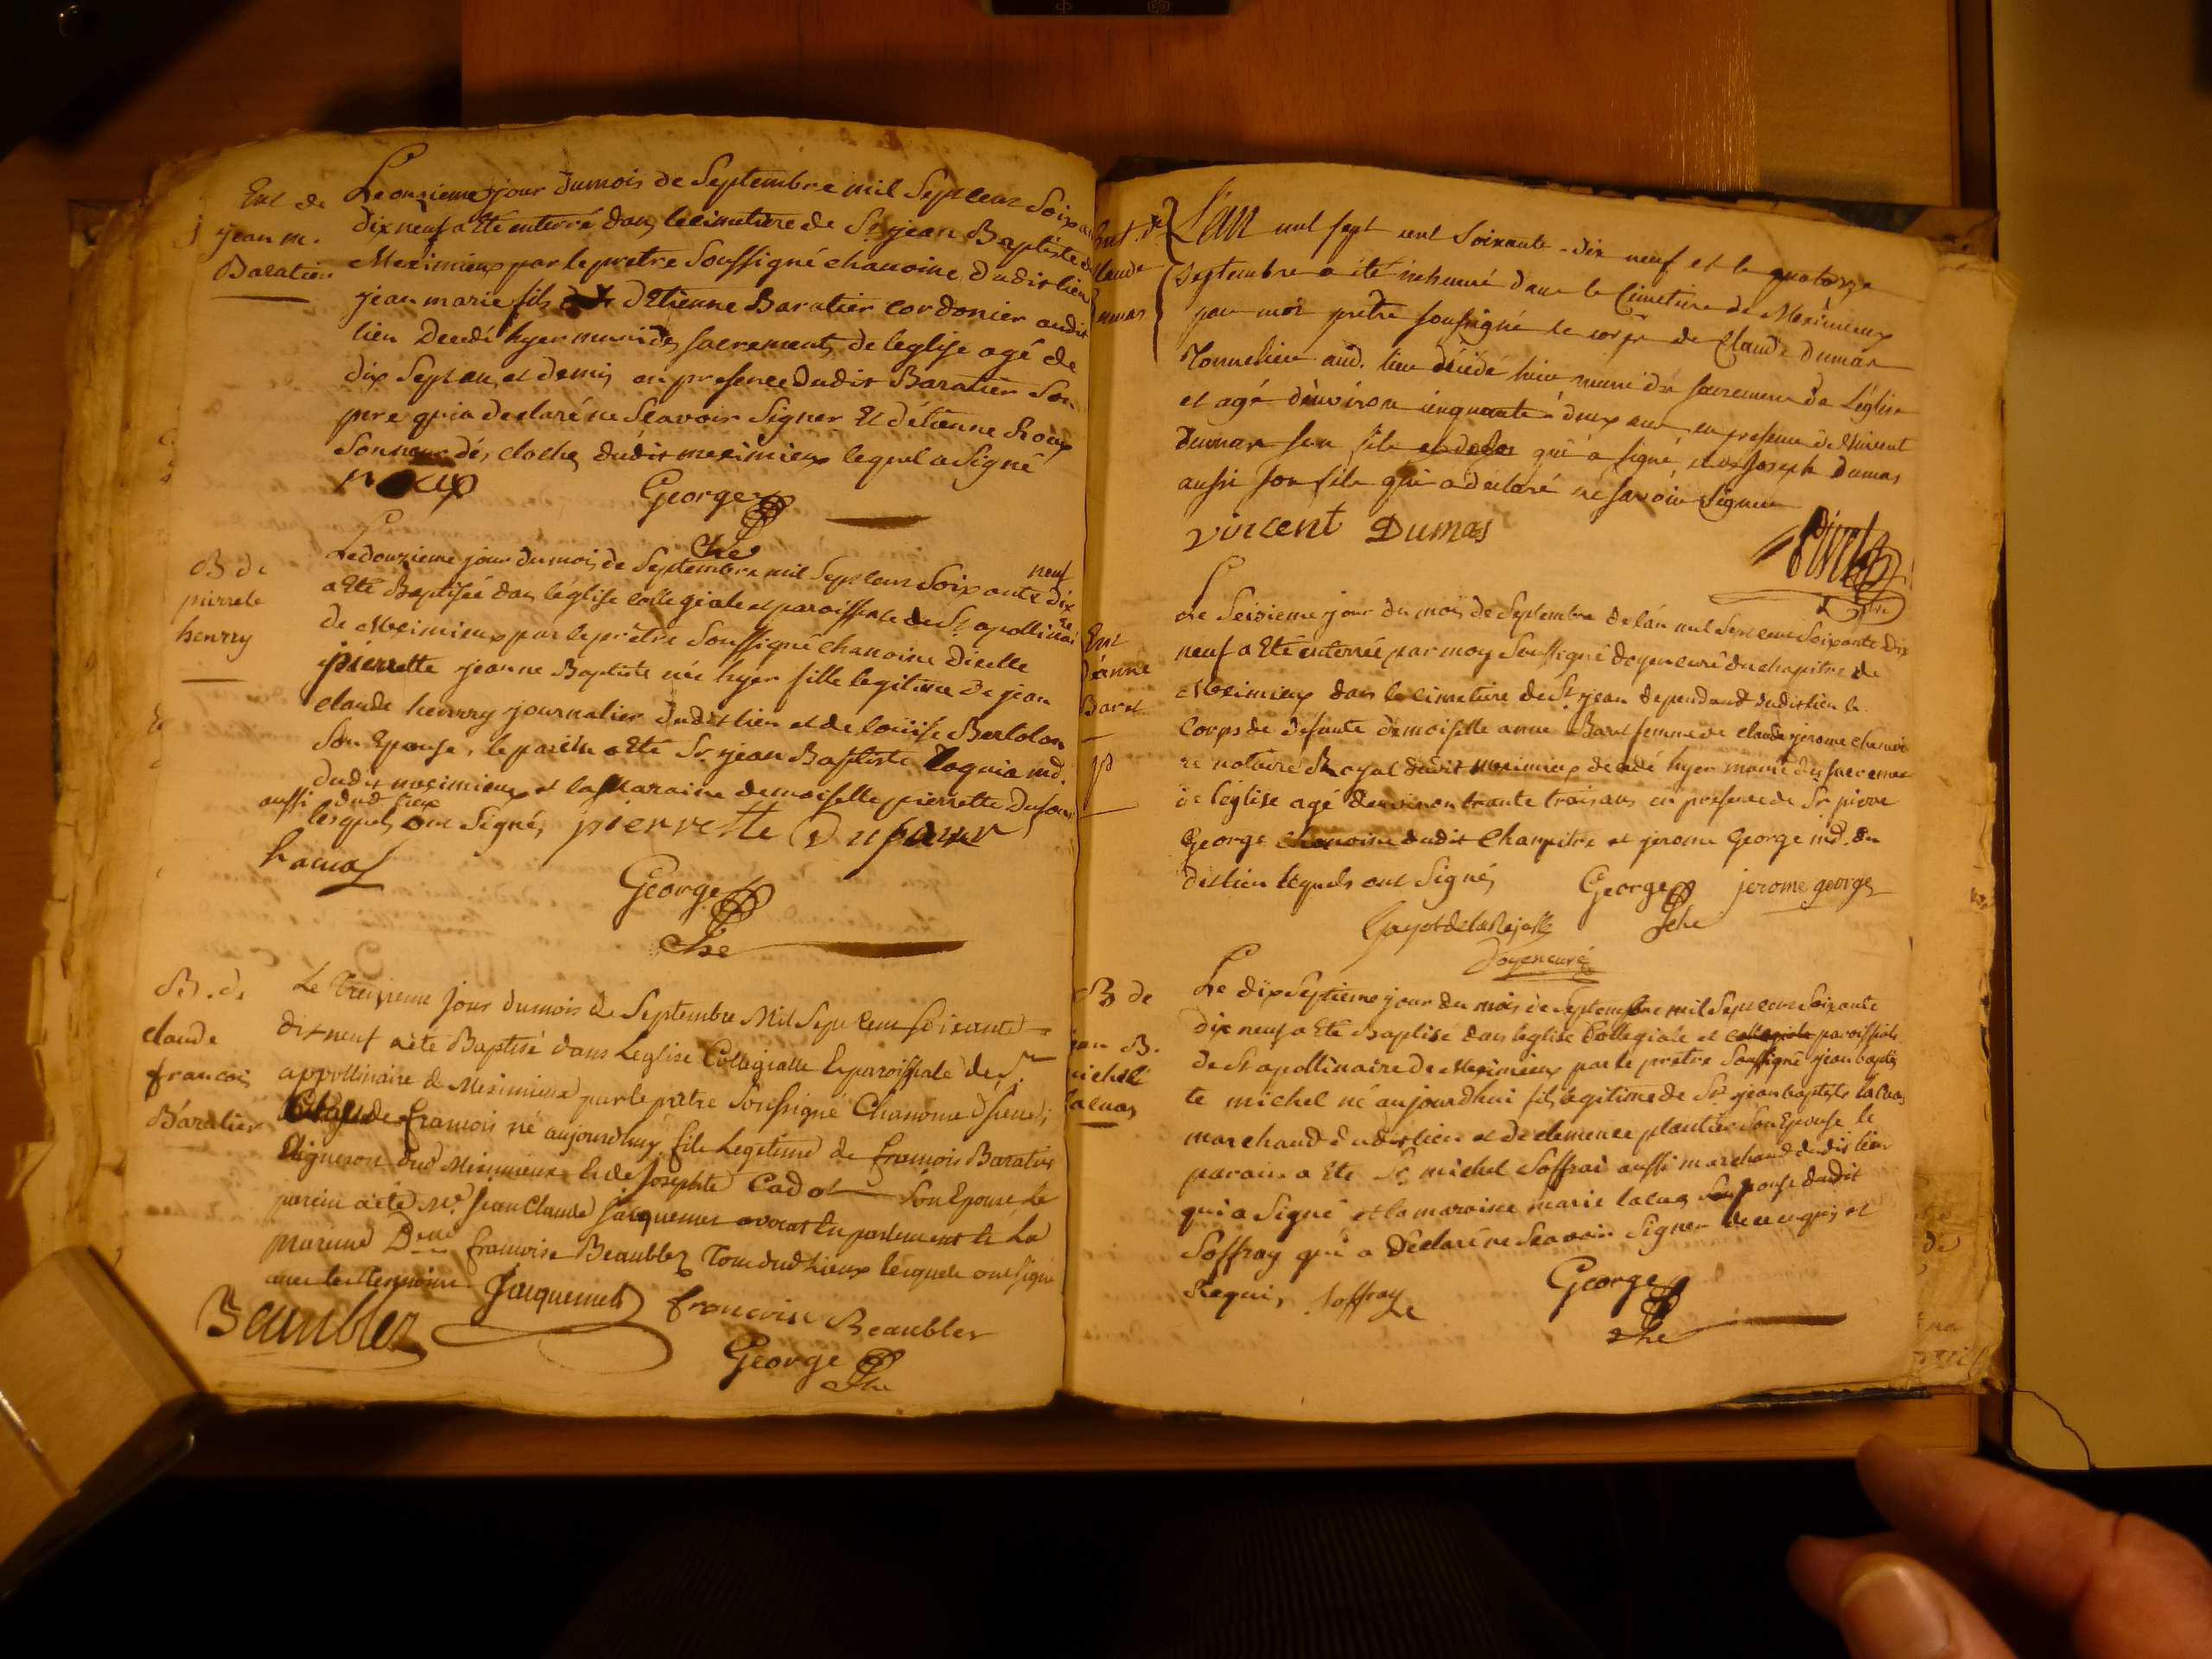 Ent de
jean m.
Baratier
Le onzieme jour du mois de Septembre mil Sept cent Soixan
dix neuf a eté enterré dans le cimetiere de St jean Baptiste de
Meximieux par le pretre Soussigné chanoine dudit lieu
jean marie fils d'Etienne Baratier cordonier audit
lieu Decedé hyer muni des sacrements de l'eglise agé de
dix Sept ans et demis en presence dudit Baratier Son
pere qui a declaré ne Scavoir Signer Et d'étienne Roux
Sonneur dés cloches dudit meximieux lequel a Signé
George
che
B de
pierrete
henrry
Le douzieme jour du mois de Septembre mil Sept cent Soixante dix neuf
a Eté Baptisée dans l'église collegiale et paroissiale de St apollinaire
de Meximieux par le prêtre Soussigné chanoine d'icelle
pierrette jeanne Baptiste née hyer fille legitime de jean
claude henrry journalier dudit lieu et de loüise Bertolon
Son Epouse, le parein a Eté Sr jean Baptiste md.
dudit meximieux et la Maraine demoiselle pierrette Dufour
aussi dud. lieux
lesquels ont Signé, pierrette Dufour
George
che
B. de
claude
francois
Baratier
Le treizieme jour du mois de Septembre Mil Sept cent soixante
dix neuf a été Baptisé dans L'eglise Collegialle Et paroissiale de St
appollinaire de Meximieux par le prêtre Soussigné Chanoine d'icelle
Claude francois né aujourdhuy fils Legitime de francois Baratier
Vigneron dud Meximieux Et de Josephte Cadot Son Epouse, Le
parein a été Me. Jean Claude Jacquemet avocat En parlement Et La
mareine Delle francoise Beaublez Tous dud Lieux lesquels ont signe
Jacquemet francoise Beaublez
Beaublez
George
che
Ent. de
Claude
Dumas
L'an mil sept cent Soixante-dix neuf et le quatorze
Septembre a été inhumé dans le Cimetiere de Meximieux
par moi prêtre soussigné le corps de Claude Dumas
Tonnelier aud. lieu décédé hier muni des sacremens de L'église
et agé d'environ cinquante-deux ans, en presence de Vincent
Dumas son fils qui a signé, et de Joseph Dumas
aussi son fils qui a declaré ne savoir Signer
vincent Dumas
Ent
d'anne
Baret
Le Seizieme jour du mois de Septembre de l'an mil Sept cent Soixante Dix
neuf a Eté enterrée par moy Soussigné doyen curé du chapitre de
Meximieux dans le cimetiere de St jean dependant dudit lieu le
Corps de defunte demoiselle anne Baret femme de claude jerome
notaire Royal dudit meximieux décédé hyer munie des sacremens
de l'église agé d'environ trante trois ans en presence de Sr pierre
George chanoine dudit Chapitre et jerome George md. du
dit lieu lequels ont Signés
George jerome george
che
Doyen curé
B de
jean B.
michel
Lacuas
Le dix Septieme jour du mois de Septembre mil Sept cent Soixante
dix neuf a Eté Baptisé dans l'eglise Collegiale et paroissiale
de St apollinaire de Meximieux par le prêtre Soussigné jean baptis
te michel né aujourdhui fils legitime de Sr jean baptiste lacuas
marchand dudit lieu et de clemence plantier Son Epouse, le
parain a Eté Sr michel Soffrai aussi marchand dudit lieu
qui a Signé et la maraine marie lacuas Epouse dudit
Soffray qui a déclaré ne Scavoir Signer de ce enquis et
Requis, Soffray
George
che